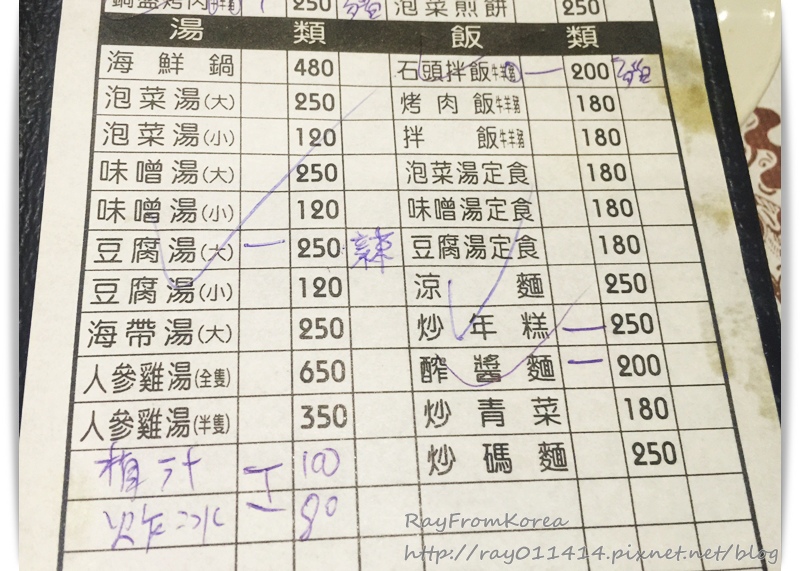 鍋盔烤肉 250 泡菜煎餅 250
湯 類 飯 類
海鮮鍋 480 石頭拌飯牛羊豬 一 200
泡菜湯(大) 250 烤肉飯牛羊豬 180
泡菜湯(小) 120 拌飯牛羊豬 180
味噌湯(大) 250 泡菜湯定食 180
味噌湯(小) 120 味噌湯定食 180
豆腐湯(大) 一 250 辣 豆腐湯定食 180
豆腐湯(小) 120 涼麵 250
海帶湯(大) 250 炒年糕 一 250
人參雞湯(全隻) 650 醡醬麵 一 200
人參雞湯(半隻) 350 炒青菜 180
100 炒碼麵 250
冰 一 80
RayFromKorea
http://ray011414.pixnet.net/blog